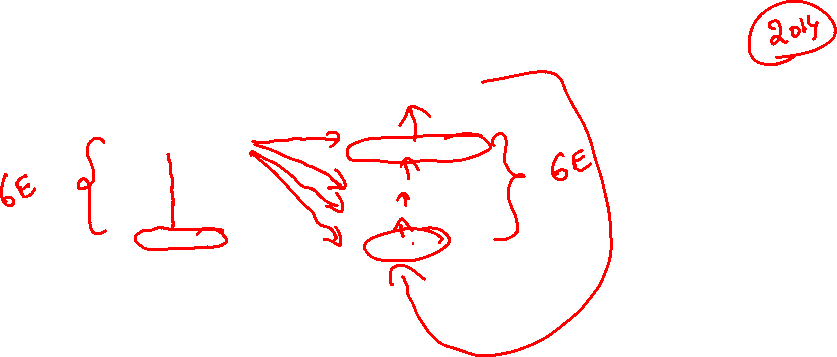 2014
6E
6E